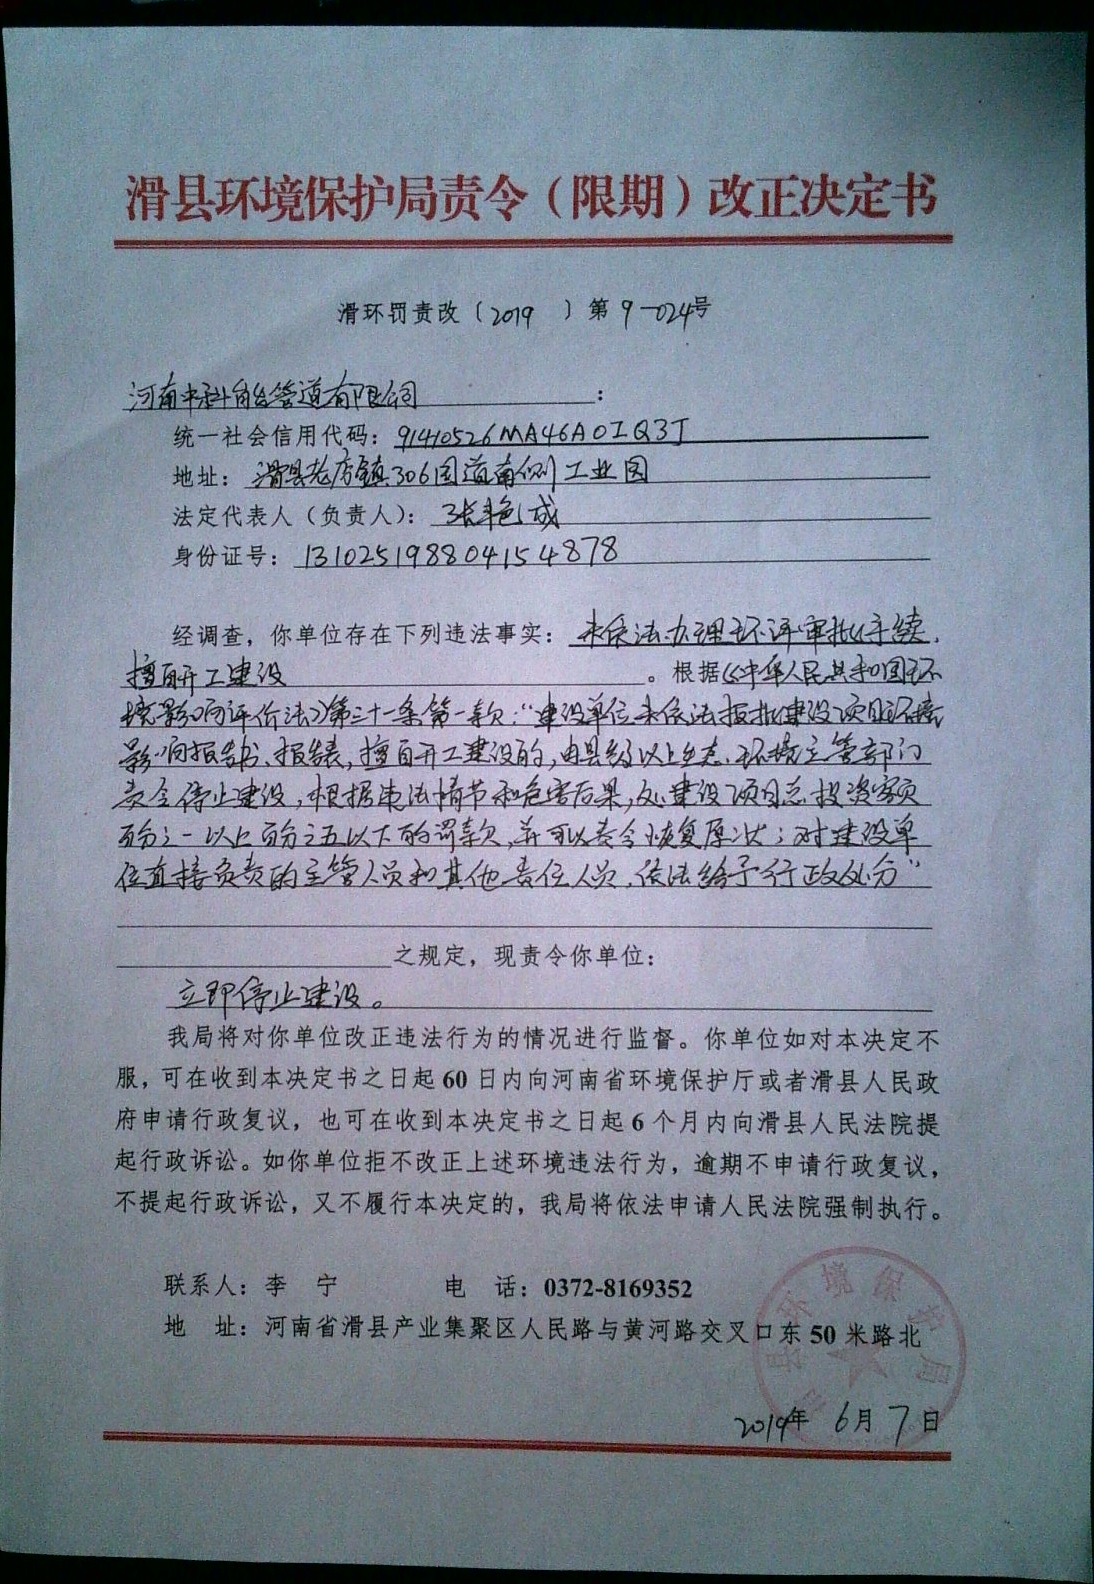 滑县环境保护局责令（限期）改正决定书
滑环罚责改〔2019 〕第9-024号
河南中科自控管道有限公司：
统一社会信用代码：91410526MA46A0IQ3J
地址：滑县老店镇306国道南侧工业园
法定代表人（负责人）：张艳成
身份证号：131025198804154878
经调查，你单位存在下列违法事实：未依法办理环评审批手续，
擅自开工建设。根据《中华人民共和国环
境影响评价法》第三十一条第一款：“建设单位未依法报批建设项目环境
影响报告书、报告表，擅自开工建设的，由县级以上生态、环境主管部门
责令停止建设，根据违法情节和危害后果，处建设项目总投资额
百分之一以上百分之五以下的罚款，并可以责令恢复原状；对建设单
位直接负责的主管人员和其他责任人员，依法给予行政处分”
之规定，现责令你单位：
立即停止建设。
我局将对你单位改正违法行为的情况进行监督。你单位如对本决定不
服，可在收到本决定书之日起60日内向河南省环境保护厅或者滑县人民政
府申请行政复议，也可在收到本决定书之日起6个月内向滑县人民法院提
起行政诉讼。如你单位拒不改正上述环境违法行为，逾期不申请行政复议，
不提起行政诉讼，又不履行本决定的，我局将依法申请人民法院强制执行。
联系人：李 宁 电 话：0372-8169352
地 址：河南省滑县产业集聚区人民路与黄河路交叉口东50米路北
县环境保护局
2019年6月7日